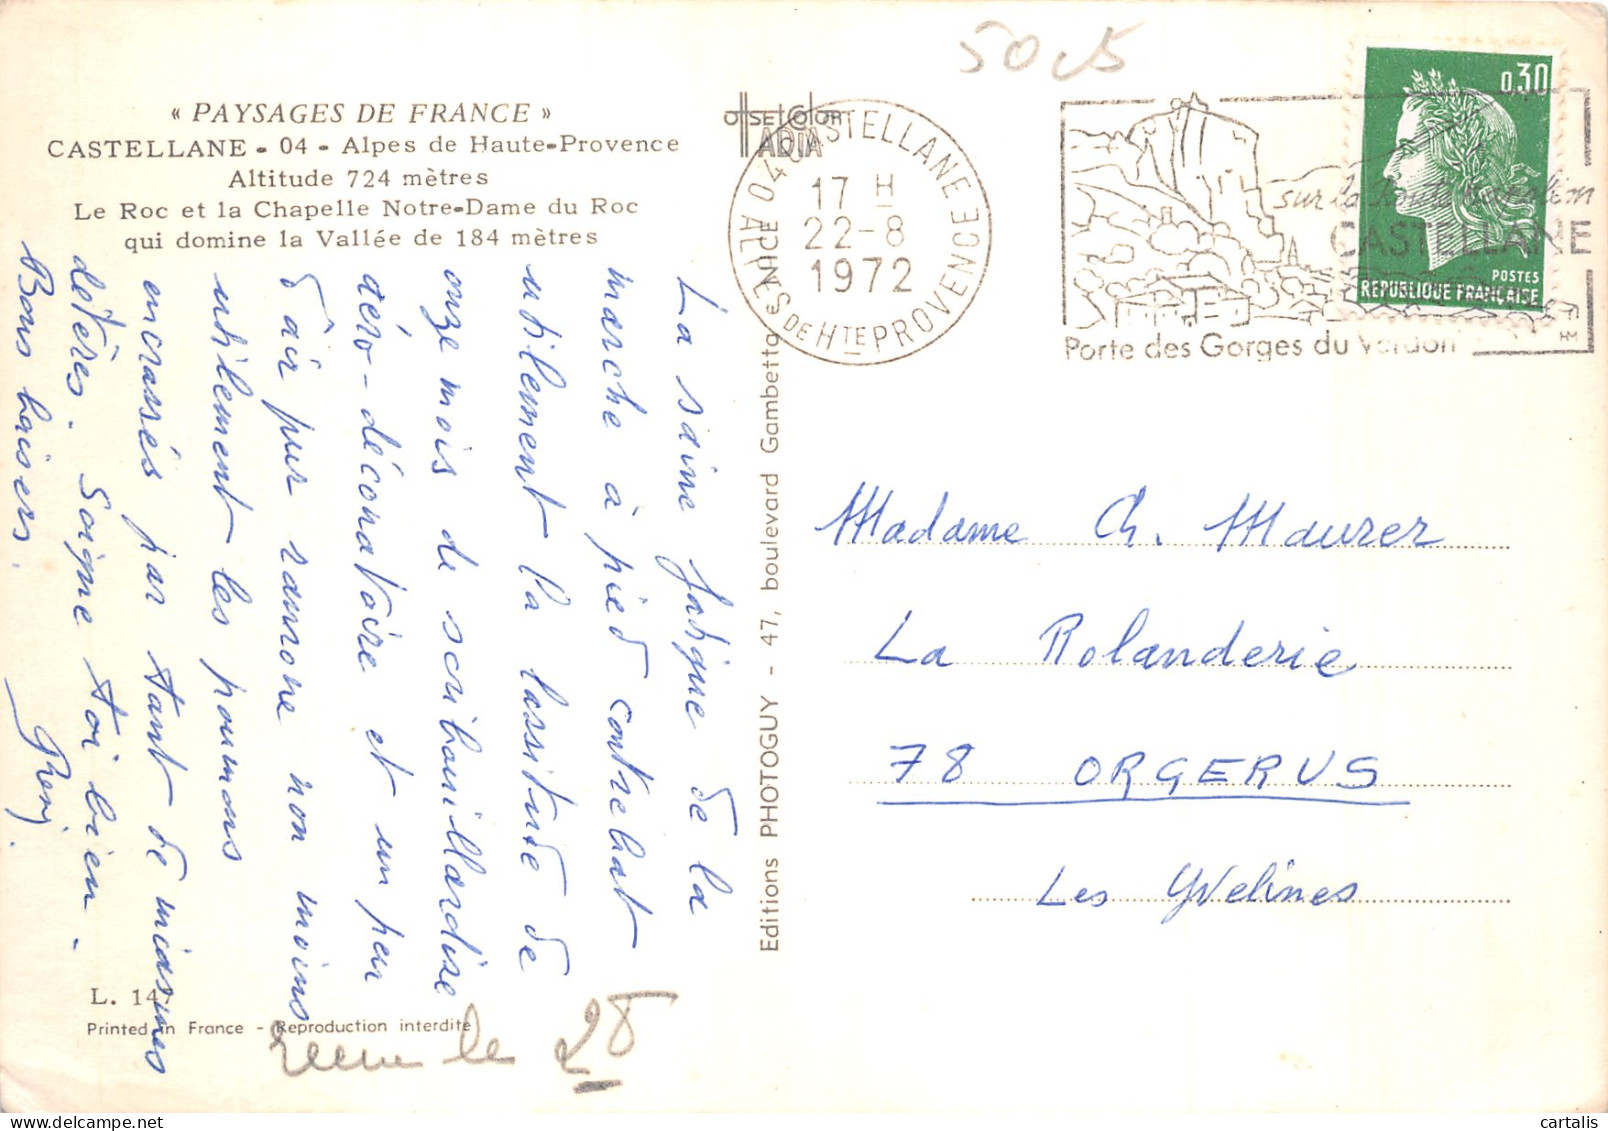 « PAYSAGES DE FRANCE »
CASTELLANE - 04 - Alpes de Haute-Provence
Altitude 724 mètres
Le Roc et la Chapelle Notre-Dame du Roc
qui domine la Vallée de 184 mètres
La saine fatigue de la
marche à pied contrebat
utilement la lassitude de
onze mois de scribouillardise
aéro-déconatoire et un peu
d'air pur ramone non moins
utilement les poumons
encrassés par tant de miasmes
délétères. Soigne toi bien.
Bons baisers.
L. 14
Printed in France - Reproduction interdite
le 28
Editions PHOTOGUY - 47, boulevard Gambetta - NICE
OffsetColor
ADIA
04 CASTELLANE
17 H
22-8
1972
ALPES DE HTE PROVENCE
50
sur la Route Napoléon
CASTELLANE
Porte des Gorges du Verdon
0,30
POSTES
REPUBLIQUE FRANÇAISE
Madame Ch. Maurer
La Rolanderie
78 ORGERUS
Les Yvelines
cartalis | delcampe.net